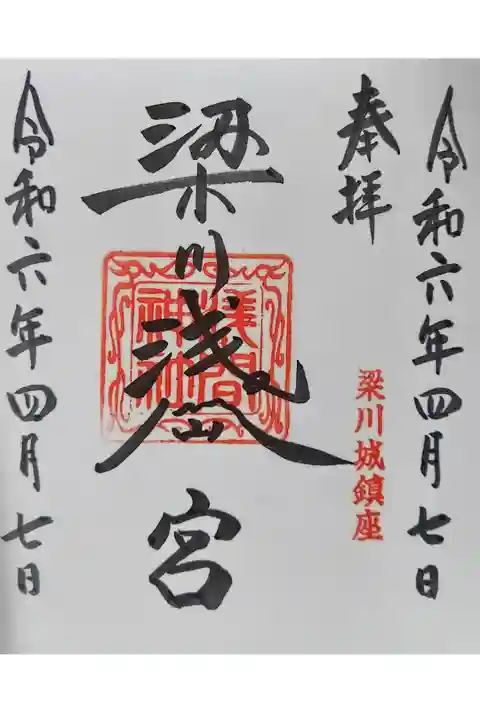 令和六年四月七日
奉拝
梁川城鎮座
梁川浅仚宮
令和六年四月七日